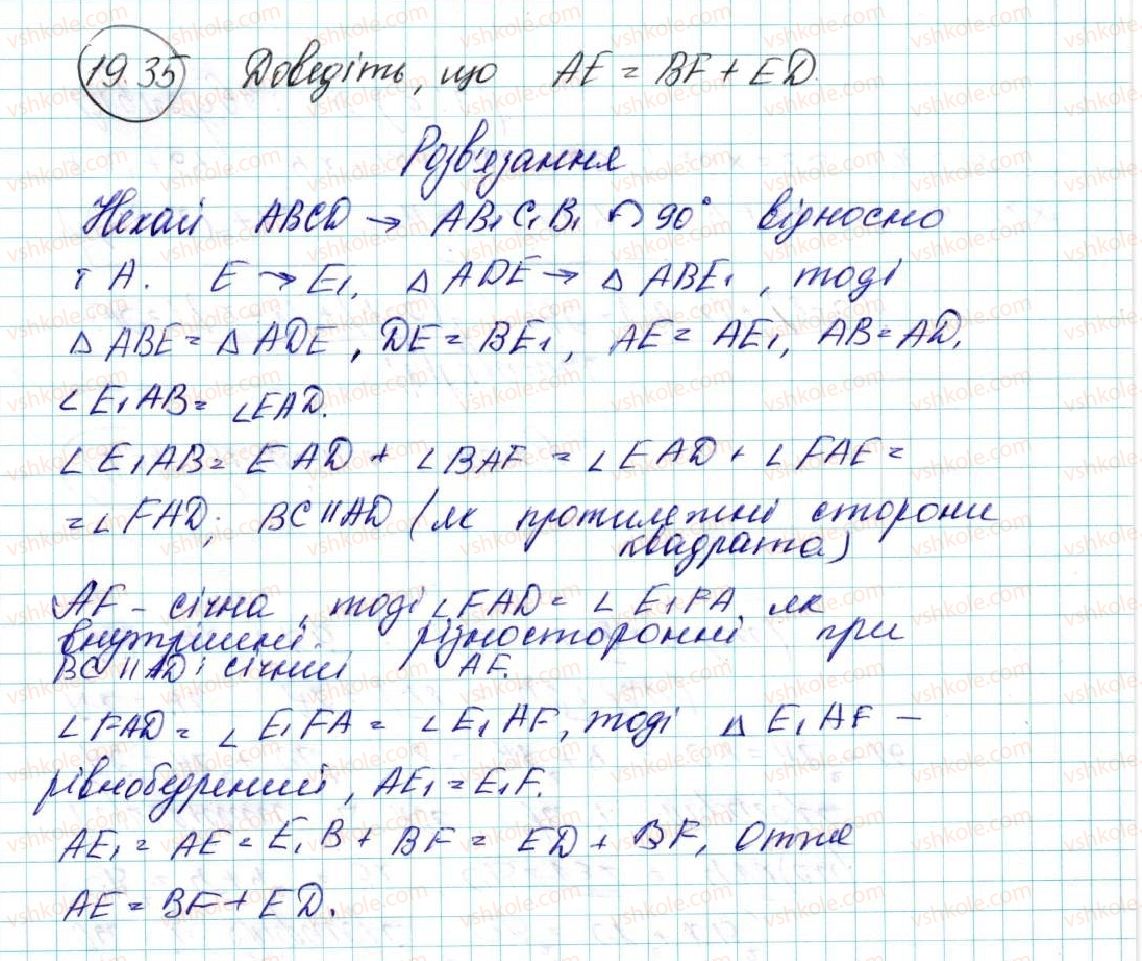 19.35 Доведіть, що AE = BF + ED.
Розв'язання
Нехай ABCD → AB₁C₁B₁ ↶ 90° відносно
т A. E → E₁, △ ADE → △ ABE₁, тоді
△ ABE = △ ADE, DE = BE₁, AE = AE₁, AB = AD,
∠E₁AB = ∠EAD.
∠E₁AB = EAD + ∠BAF = ∠EAD + ∠FAE =
= ∠FAD; BC || AD (як протилежні сторони
квадрата)
AF - січна, тоді ∠FAD = ∠E₁FA, як
внутрішні різносторонні при
BC || AD і січній AF.
∠FAD = ∠E₁FA = ∠E₁AF, тоді △ E₁AF -
рівнобедрений, AE₁ = E₁F.
AE₁ = AE = E₁B + BF = ED + BF, Отже
AE = BF + ED.